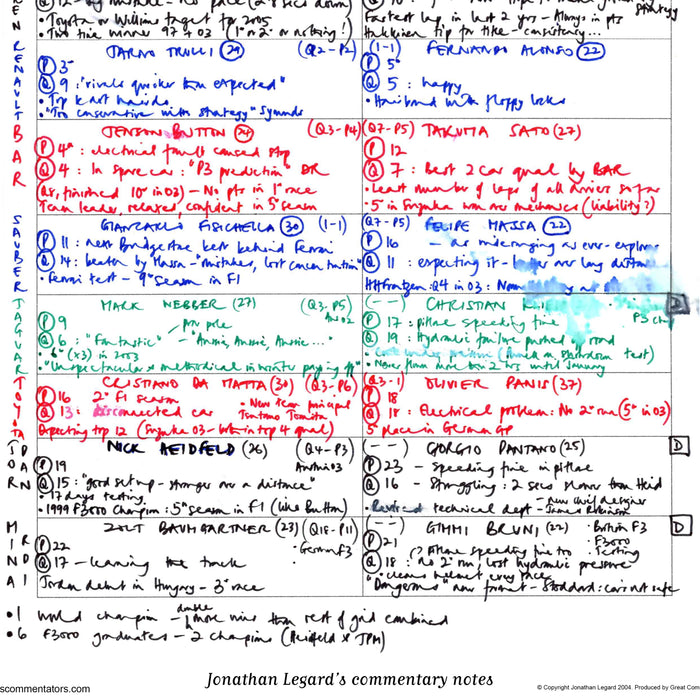 RENAULT
Toyota or Williams target for 2005
Two time winner 97 + 03 (1st or 2nd or nothing!)
Fastest lap in last 2 yrs - Always in pts
strategy
Hakkinen tip for title - consistency...
JARNO TRULLI (29) (Q2-P2)
P 3rd
Q 9 "rivals quicker than expected"
• Top kart hairdo
• "Too conservative with strategy" Symonds
(1-1) FERNANDO ALONSO (22)
P 5th
Q 5 : happy
• Hairband with floppy locks
BAR
JENSON BUTTON (24) (Q3-P4)
P 4th : electrical fault caused stop
Q 4 : In spare car: "P3 prediction" DR
(Q8, finished 10th in 03) - No pts in 1st race
Team leader, relaxed, confident in 5th season
(Q7-P5) TAKUMA SATO (27)
P 12
Q 7 : Best 2 car qual by BAR
• Least number of laps of all drivers so far
• 5th in Suzuka won over mechanics (liability?)
SAUBER
GIANCARLO FISICHELLA (30) (1-1)
P 11 : next Bridgestone best behind Ferrari
Q 14 : beaten by Massa - "mistakes, lost concentration"
• Ferrari test - 9th season in F1
(Q7-P5) FELIPE MASSA (22)
P 16 - as
Q 11 : expecting it - over long distance
HHFrentzen: Q4 in 03:
JAGUAR
MARK WEBBER (27) (Q3-P5)
P 9
Aus 02
prov pole
Q 6 : "Fantastic" - "Aussie, Aussie, Aussie..."
• 6th (x3) in 2003
"Unspectacular & methodical in winter paying off"
(--) CHRISTIAN
D
P 17 : pitlane speeding fine
F3 champ
Q 19 : Hydraulic failure pushed off road
• Never more than 2 hrs until January
TOYOTA
CRISTIANO DA MATTA (30) (Q3-P6)
P 16 2nd F1 season
• New team principal
Q 13 : disconnected car Tsutomu Tomita
Expecting top 12 (Suzuka 03 - both in top 4 qual)
(Q3-1) OLIVIER PANIS (37)
P 18
Q 18 : Electrical problem: No 2nd run (5th in 03)
5 place in German GP
JORDAN
NICK HEIDFELD (26) (Q4-P3)
P 19
Austria 03
Q 15 : "good set up - stronger over a distance"
• 17 days testing
• 1999 F3000 Champion: 5th season in F1 (like Button)
(--) GIORGIO PANTANO (25)
D
P 23 - speeding fine in pitlane
Q 16 - Struggling: 2 secs slower than Heid
- new chief designer
• Revised technical dept - James Robinson
MINARDI
ZOLT BAUMGARTNER (23) (Q18-P11)
P 22
• German F3
Q 17 - learning the track
Jordan debut in Hungary - 3rd race
(--) GIMMI BRUNI (22)
D
• British F3
• F3000
• Testing
P 21
Pitlane speeding fine too
Q 18 : no 2nd run, lost hydraulic pressure
• cleans helmet every race
"Dangerous" new format - Stoddart: cars not safe
• 1 world champion - double more wins than rest of grid combined
• 6 F3000 graduates - 2 champions (Heidfeld & JPM)
Jonathan Legard's commentary notes
scommentators.com
© Copyright Jonathan Legard 2004. Produced by Great Com